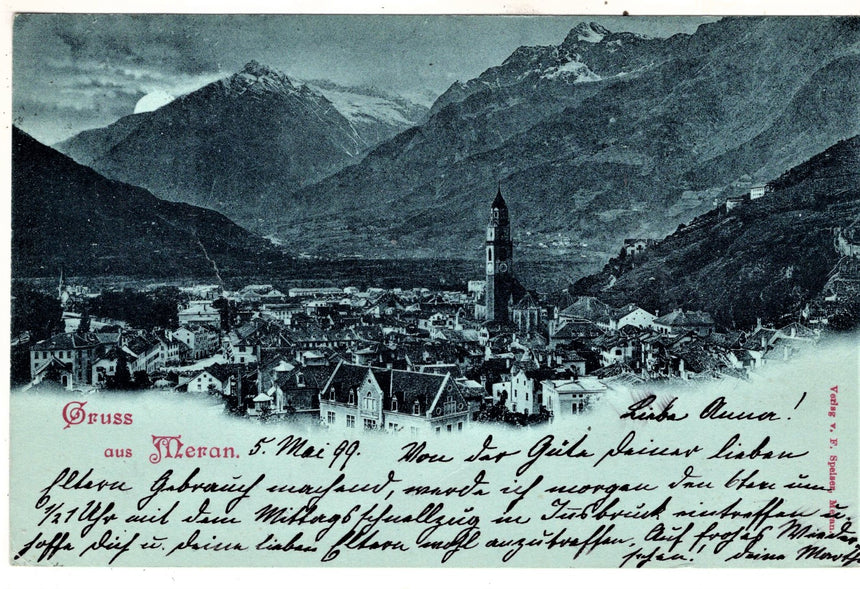 Gruss
aus Meran.
Verlag v. F. Speiser, Meran
Liebe Anna!
5. Mai 99. Von der Güte deiner lieben
Eltern Gebrauch machend, werde ich morgen den 6ten um
1/2 1 Uhr mit dem Mittagsschnellzug in Insbruck eintreffen u.
hoffe dich u. deine lieben Eltern wohl anzutreffen. Auf frohes Wieder
sehen! deine